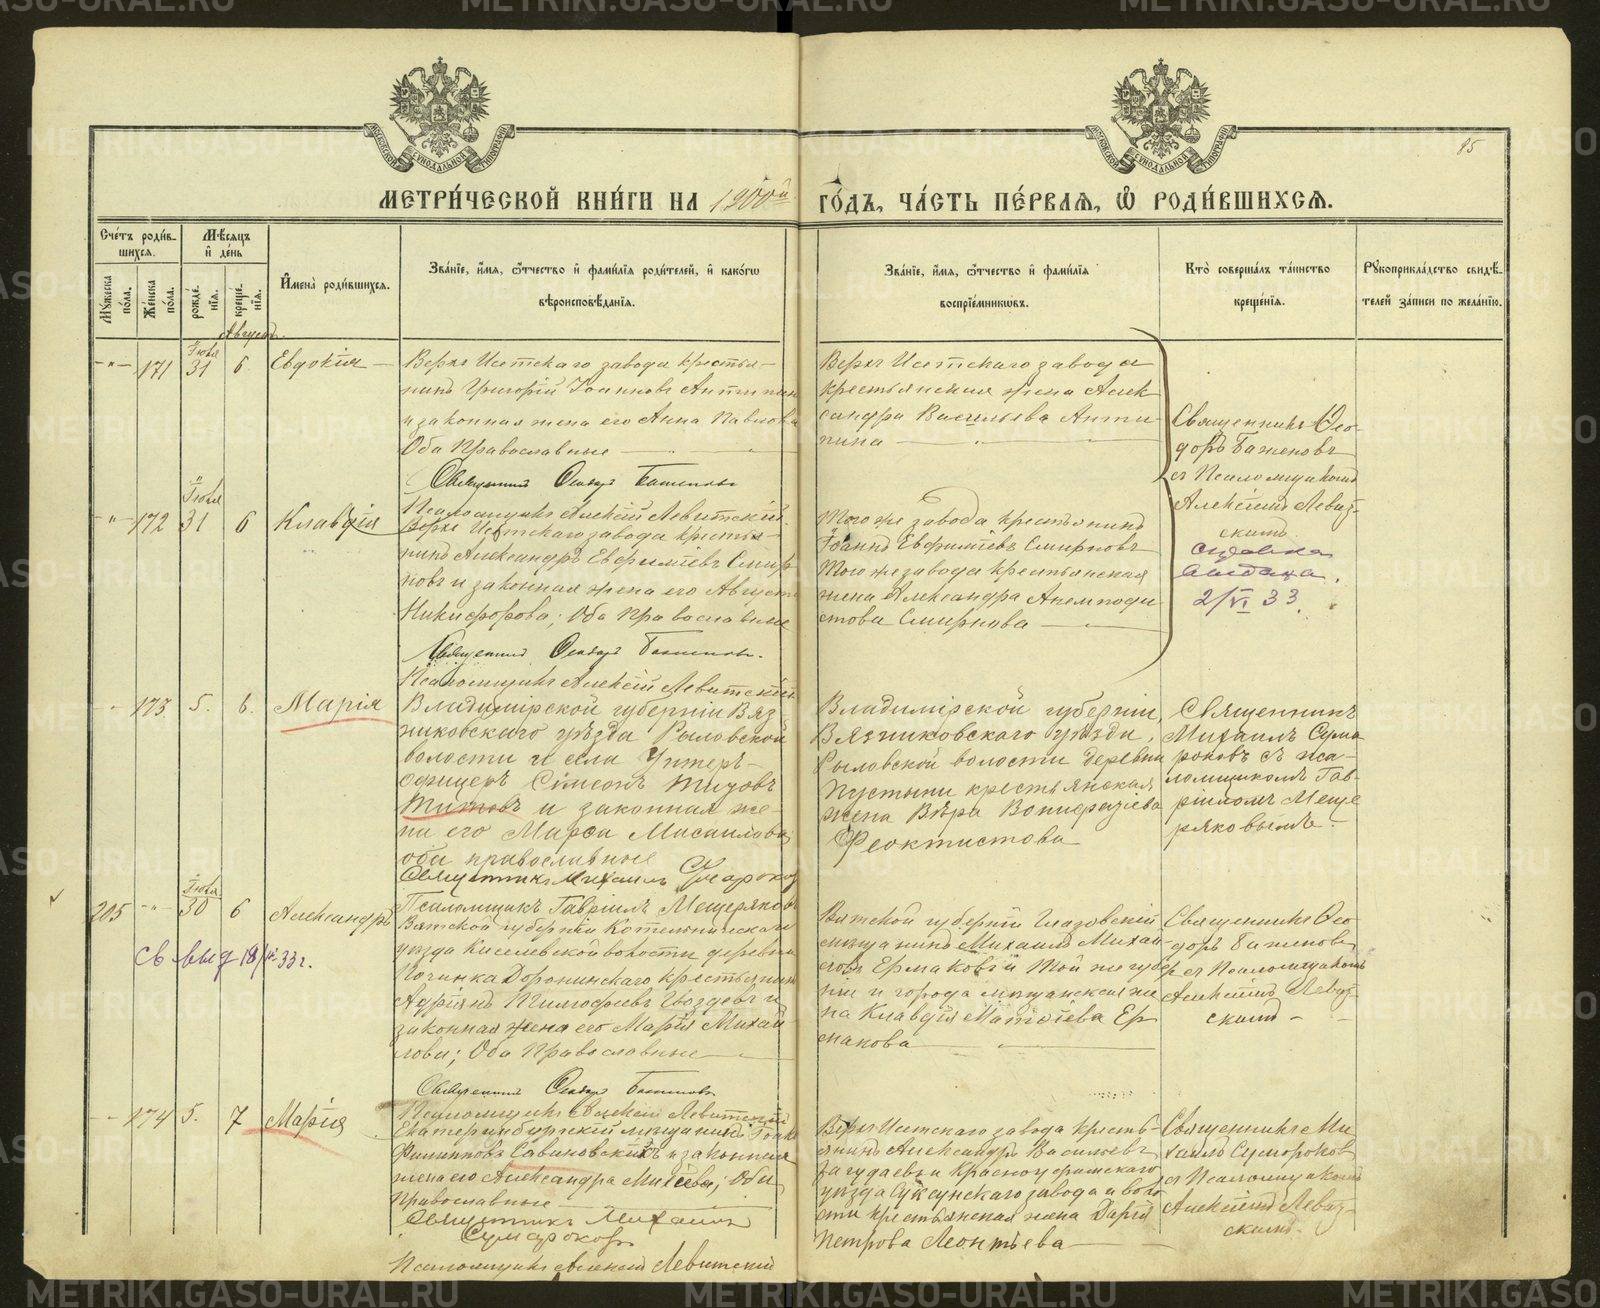 95
МЕТРИ́ЧЕСКОЙ КНИ́ГИ НА 1900й ГО́ДЪ, ЧА́СТЬ ПЕ́РВАЯ, Ѡ҆ РОДИ́ВШИХСЯ.
Сче́тъ роди́в-
шихся.
Мѣ́сяцъ
и҆ де́нь
И҆мена̀ роди́вшихся.
Зва́нїе, и҆́мя, ѻ҆́тчество и҆ фами́лїя роди́телей, и҆ како́гѡ
вѣроисповѣ́данїя.
Зва́нїе, и҆́мя, ѻ҆́тчество и҆ фами́лїя
воспрїе́мникѡвъ.
Кто̀ соверша́лъ та́инство
креще́нїя.
Рꙋкоприкла́дство свидѣ́-
телей за́писи по жела́нїю.
Мꙋ́жеска
по́ла.
Же́нска
по́ла.
рожде́-
нїя.
креще́-
нїя.
Августъ.
-"- 171 Іюля 31 6 Евдокія
Верхъ Исетскаго завода крестья-
нинъ Григорій Іоанновъ Антипин
и законная жена его Анна Павлова
Оба Православные
Священникъ Ѳеодоръ Баженовъ
Псаломщикъ Алексій Левитскій.
Верхъ Исетскаго завода
крестьянская жена Алек
сандра Васильева Анти-
пина
Священникъ Ѳео-
доръ Баженовъ
съ Псаломщикомъ
Алексіемъ Левит-
скимъ
справка
выдана.
2/VI 33.
-"- 172 Іюля 31 6 Клавдія
Верхъ Исетскаго завода крестья-
нинъ Александръ Евфиміевъ Смир
новъ и законная жена его Августа
Никифорова; Оба Православные
Священникъ Ѳеодоръ Баженовъ.
Псаломщикъ Алексій Левитскій
Того же завода крестьянинъ
Іоаннъ Евфиміевъ Смирновъ
Того же завода крестьянская
жена Александра Анемподи
стова Смирнова
173 5. 6. Марія
Владимірской губерніи Вяз
никовскаго уѣзда Рыловской
волости и села Унтеръ-
офицеръ Симеонъ Титовъ
Титовъ и законная же
на его Марѳа Мисаилова
оба православные
Священникъ Михаилъ Сумароковъ
Псаломщикъ Гавріилъ Мещеряковъ
Владимірской губерніи,
Вязниковскаго уѣзда,
Рыловской волости деревни
Пустыни крестьянская
жена Вѣра Вонифатіева
Ѳеоктистова
Священникъ
Михаилъ Сума
роковъ съ пса-
ломщикомъ Гав-
ріиломъ Меще
ряковымъ.
205 -"- Іюля 30 6 Александръ
св выд 18/ 33 г.
Вятской губерніи Котельническаго
уѣзда Киселевской волости деревни
Починка Доронинскаго крестьянинъ
Адріанъ Тимофеевъ Гвоздевъ и
законная жена его Марія Михай
лова; Оба Православные
Священникъ Ѳеодоръ Баженовъ
Псаломщикъ Алексій Левитскій
Вятской губерніи Глазовскій
мѣщанинъ Михаилъ Михай
ловъ Ермаковъ и Той же губер
ніи и города мѣщанская же
на Клавдія Матѳіева Ер
макова
Священникъ Ѳео
доръ Баженовъ
съ Псаломщикомъ
Алексіемъ Левит-
скимъ
174 5. 7 Марія
Екатеринбургскій мѣщанинъ Іоаннъ
Филипповъ Савиновскихъ и законная
жена его Александра Михѣева; Оба
Православные
Священникъ Михаилъ
Сумароковъ
Псаломщикъ Алексій Левитскій
Верхъ Исетскаго завода кресть-
янинъ Александръ Васильевъ
Загудаевъ и Красноуфимскаго
уѣзда Суксунскаго завода и воло
сти крестьянская жена Дарія
Петрова Леонтьева
Священникъ Ми
хаилъ Сумароковъ
съ Псаломщикомъ
Алексіемъ Левит-
скимъ.
METRIKI.GASO-URAL.RU